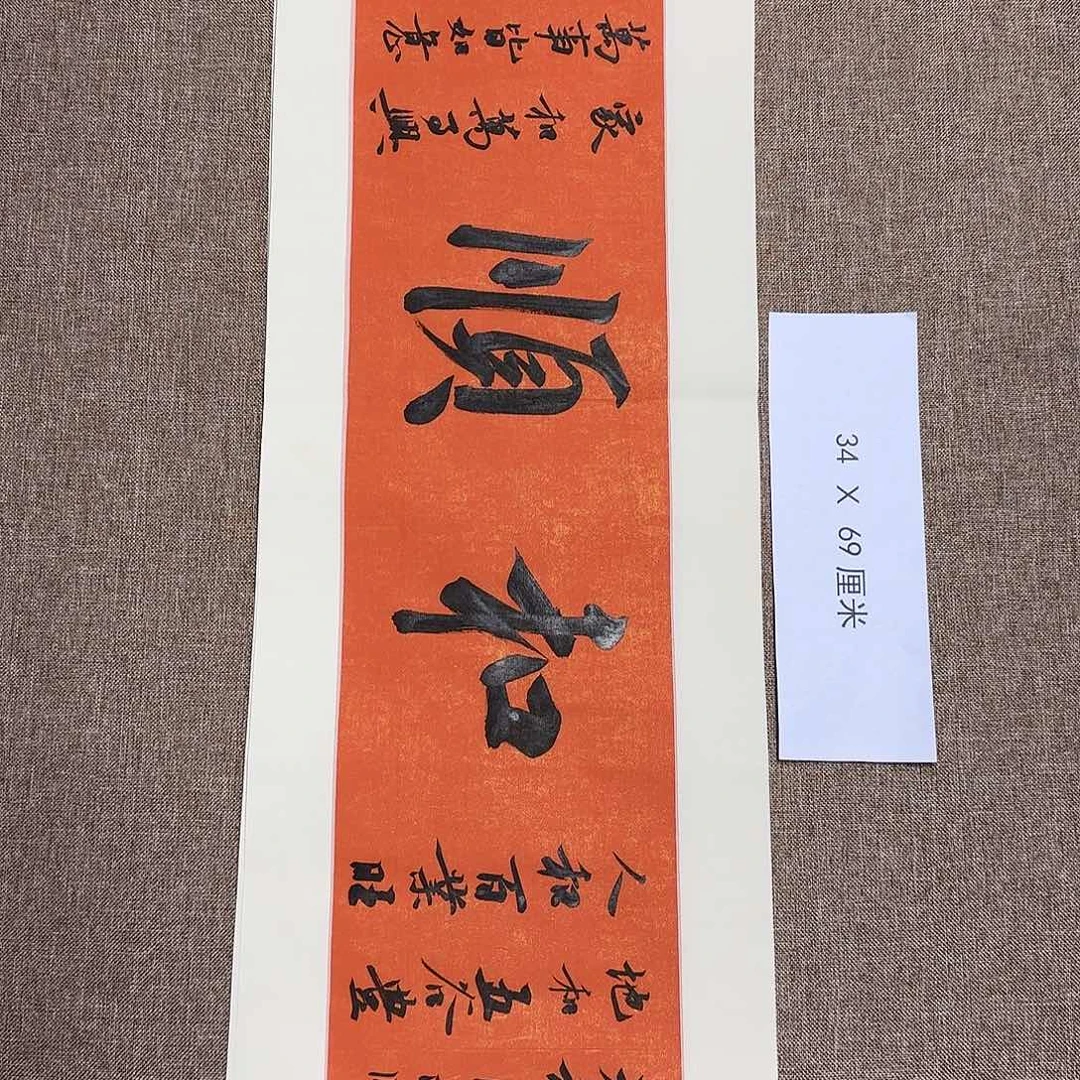 地和五谷豐
人和百業旺
和順
家和萬事興
萬事皆如意
34 X 69厘米